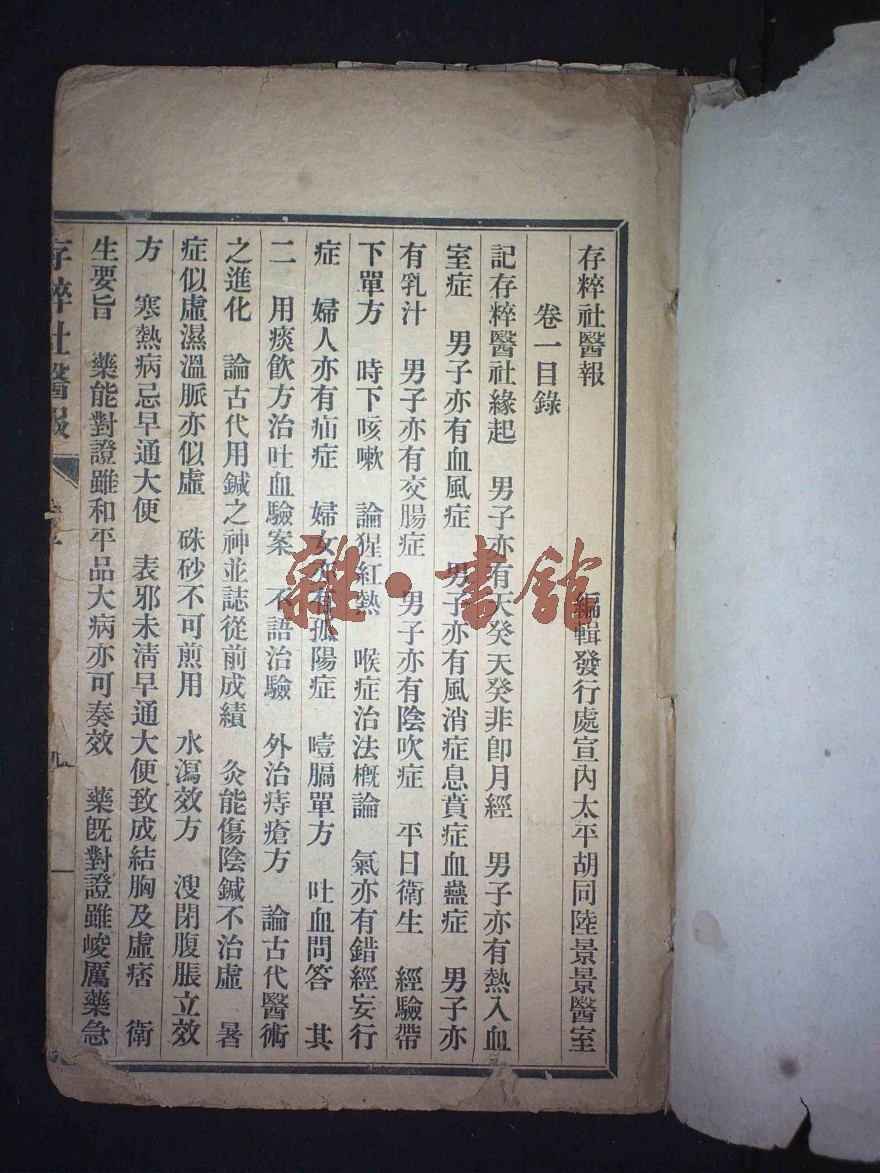 存粹社醫報　　編輯發行處宣內太平胡同陸景景醫室
卷一目錄
記存粹醫社緣起　男子亦有天癸天癸非卽月經　男子亦有熱入血
室症　男子亦有血風症　男子亦有風消症息賁症血蠱症　男子亦
有乳汁　男子亦有交腸症　男子亦有陰吹症　平日衛生　經驗帶
下單方　時下咳嗽　論猩紅熱　喉症治法概論　氣亦有錯經妄行
症　婦人亦有疝症　婦女亦有孤陽症　噎膈單方　吐血問答　其
二　用痰飲方治吐血驗案　不語治驗　外治痔瘡方　論古代醫術
之進化　論古代用鍼之神並誌從前成績　灸能傷陰鍼不治虛　暑
症似虛濕溫脈亦似虛　硃砂不可煎用　水瀉效方　溲閉腹脹立效
方　寒熱病忌早通大便　表邪未清早通大便致成結胸及虛痞　衛
生要旨　藥能對證雖和平品大病亦可奏效　藥旣對證雖峻厲藥急
存粹社醫報
雜·書館